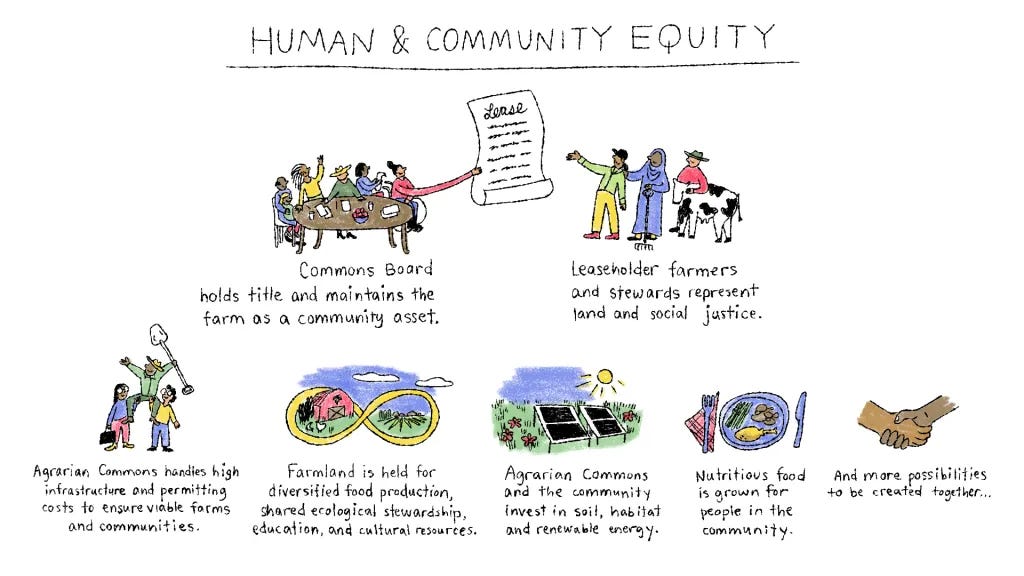 HUMAN & COMMUNITY EQUITY
Lease
Commons Board
holds title and maintains the
farm as a community asset.
Leaseholder farmers
and stewards represent
land and social justice.
Agrarian Commons handles high
infrastructure and permitting
costs to ensure viable farms
and communities.
Farmland is held for
diversified food production,
shared ecological stewardship,
education, and cultural resources.
Agrarian Commons
and the community
invest in soil, habitat
and renewable energy.
Nutritious food
is grown for
people in the
community.
And more possibilities
to be created together...